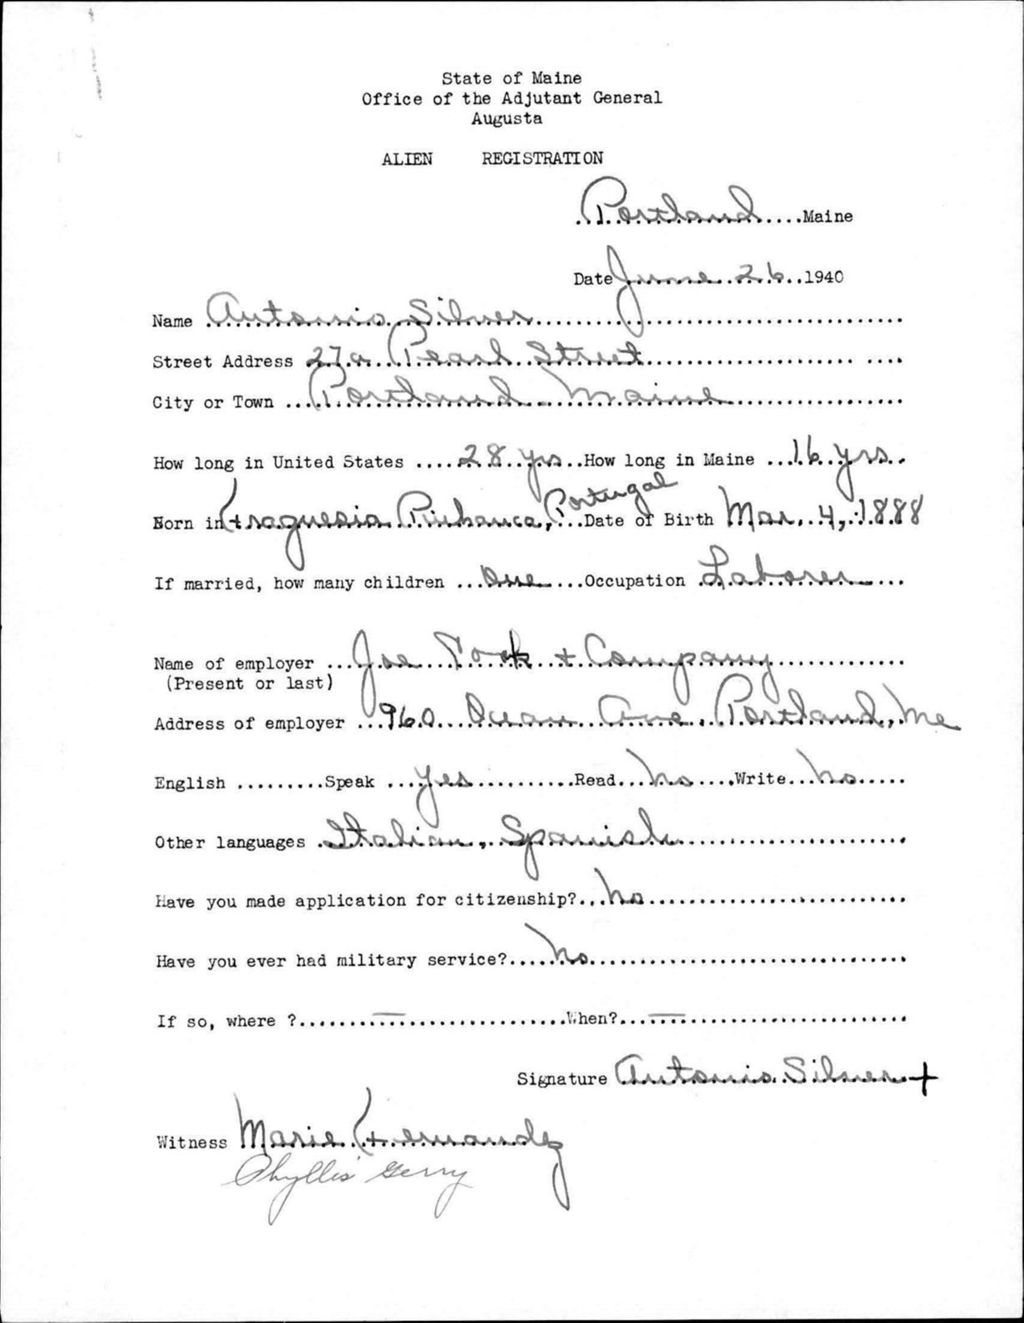 State of Maine
Office of the Adjutant General
Augusta
ALIEN REGISTRATION
Portland....Maine
Date June 26..1940
Name Antonio Silver
Street Address 27a Pearl Street
City or Town Portland Maine
How long in United States 28 yrs How long in Maine 16 yrs.
Born in Portugal Date of Birth Mar. 4, 1888
If married, how many children One Occupation Laborer
Name of employer Joe & Company
(Present or last)
Address of employer 960 Ocean Ave. Portland, Me
English Speak Yes Read No Write No
Other languages Italian, Spanish
Have you made application for citizenship? No
Have you ever had military service? No
If so, where ? — When? —
Signature Antonio Silver +
Witness Marie Hernandez
Phyllis Gerry